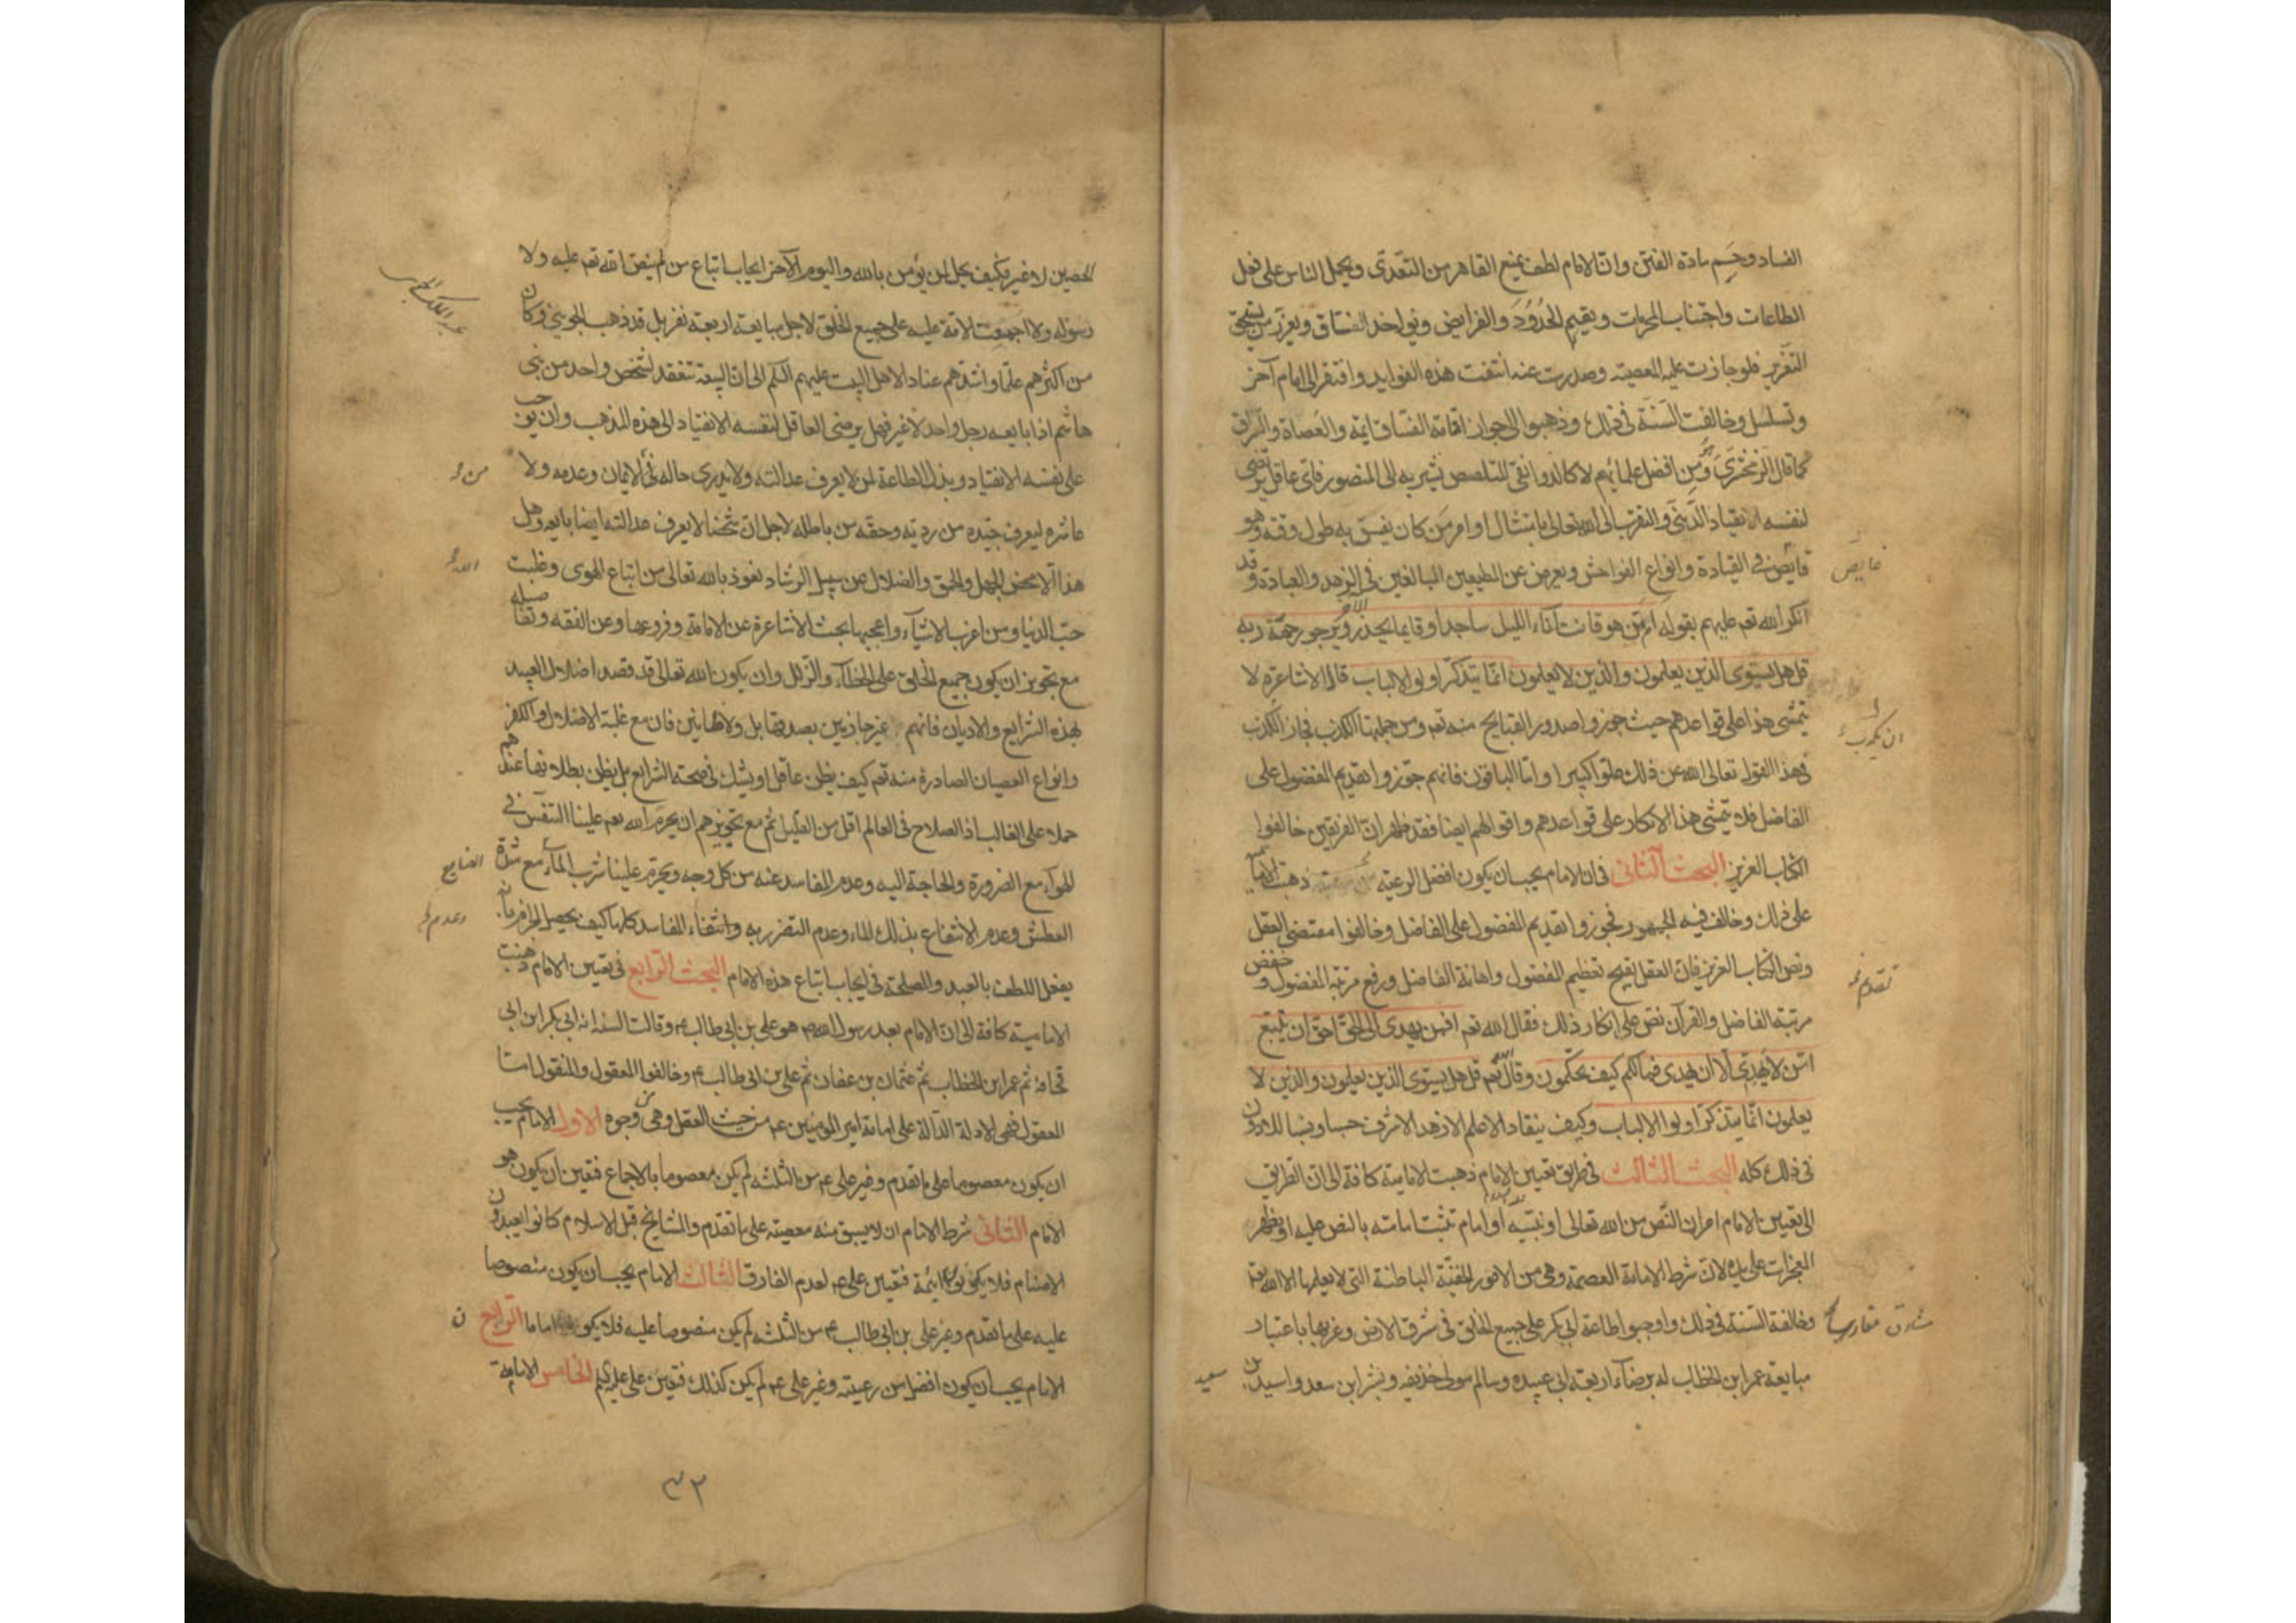 الفساد وحسم مادة الفتن وان الامام لطف يمنع القاهر من التعدى ويحمل الناس على فعل
الطاعات واجتناب المحرمات ويقيم الحدود والفرايض ويواخذ الفساق ويعزر من يستحق
التعزير فلو جازت عليه المعصية وصدرت عنه انتفت هذه الفوايد وافتقر الى امام آخر
وتسلسل وخالفت السنة فى ذلك وذهبوا الى جواز امامة الفساق والعصاة والسراق
كما قال الزمخشرى وهو من افضل علمائهم لا كالدوانقى المتلصص يشير به الى المنصور فاى عاقل يرضى
لنفسه الانقياد الدينى والتقرب الى الله تعالى بامتثال اوامر من كان يفسق به طول وقته وهو
فايض فى القيادة وانواع الفواحش ويعرض عن المطيعين المبالغين فى الزهد والعبادة وقد
انكر الله تعم عليهم بقوله امن هو قانت آناء الليل ساجدا وقايما يحذر الآخرة ويرجو رحمة ربه
قل هل يستوى الذين يعلمون والذين لا يعلمون انما يتذكر اولو الالباب قال الاشاعرة لا
يتمشى هذا على قواعدهم حيث جوزوا صدور القبايح منه تعم ومن جملتها الكذب فجاز الكذب
فى هذا القول تعالى الله عن ذلك علوا كبيرا واما الباقون فانهم جوزوا تقديم المفضول على
الفاضل فلا يتمشى هذا الانكار على قواعدهم واقوالهم ايضا فقد ظهر ان الفريقين خالفوا
الكتاب العزيز البحث الثانى فى ان الامام يجب ان يكون افضل الرعية ذهبت الامامية
على ذلك وخالف فيه الجمهور فجوزوا تقديم المفضول على الفاضل وخالفوا مقتضى العقل
ونص الكتاب العزيز فان العقل يقبح تعظيم المفضول واهانة الفاضل ورفع مرتبة المفضول وخفض
مرتبة الفاضل والقرآن نص على انكار ذلك فقال الله تعم افمن يهدى الى الحق احق ان يتبع
امن لا يهدى الا ان يهدى فما لكم كيف تحكمون وقال الله تعم قل هل يستوى الذين يعلمون والذين لا
يعلمون انما يتذكر اولوا الالباب وكيف ينقاد الاعلم الازهد الاشرف حسبا ونسبا للدون
فى ذلك كله البحث الثالث فى طريق تعيين الامام ذهبت الامامية كافة الى ان الطريق
الى تعيين الامام امران النص من الله تعالى او نبيه او امام تثبت امامته بالنص عليه او بظهر
المعجزات على يده لان شرط الامامة العصمة وهى من الامور الخفية الباطنة التى لا يعلمها الا الله تعم
وخالفة السنة فى ذلك واوجبوا طاعة ابى بكر على جميع الخلق فى شرق الارض وغربها باعتبار
مبايعة عمر ابن الخطاب له برضاء اربعة ابى عبيده وسالم مولى حذيفه وبشر ابن سعد واسيد بن
فايض
ان يكذب
تقديم
مشارق مغاربها
سعيد
الحصين لا غير فكيف يحل لمن يؤمن بالله واليوم الآخر ايجاب اتباع من لم ينص الله تعم عليه ولا
رسوله ولا اجتمعت الامة عليه على جميع الخلق لاجل مبايعة اربعة نفر بل قد ذهب الجوينى وكان
من اكثرهم علما واشدهم عنادا لاهل البيت عليهم السلم الى ان البيعة تنعقد لشخص واحد من بنى
هاشم اذا بايعه رجل واحد لا غير فهل يرضى العاقل لنفسه الانقياد الى هذه المذهب وان يوجب
على نفسه الانقياد وبذل الطاعة لمن لا يعرف عدالته ولا يدرى حاله فى الايمان وعدمه ولا
عاشره ليعرف جيده من رديه وحقه من باطله لاجل ان شخصا لا يعرف عدالته ايضا بايعه وهل
هذا الا محض الجهل والحمق والضلال عن سبيل الرشاد نعوذ بالله تعالى من اتباع الهوى وغلبت
حب الدنيا ومن اغرب الاشياء واعجبها بحث الاشاعرة عن الامامة وفروعها وعن الفقه وتفاصيله
مع تجويز ان يكون جميع الخلايق على الخطاء والزلل وان يكون الله تعالى قد قصد اضلال العبيد
بهذه الشرايع والاديان فانهم غير جازمين بصدقها بل ولا ظانين فان مع غلبة الاضلال والكفر
وانواع العصيان الصادرة منه تعم كيف يظن عاقل او يشك فى صحة الشرايع بل يظن بطلانها عندهم
حملا على الغالب اذ الصلاح فى العالم اقل من القليل ثم مع تجويزهم ان يحرم الله تعم علينا التنفس فى
الهواء مع الضرورة والحاجة اليه وعدم المفاسد عنه من كل وجه ويحرم علينا شرب الماء مع شدة
العطش وعدم الانتفاع بذلك الماء وعدم التضرر به وانتفاء المفاسد كلها كيف يحصل الجزم بانه
يفعل اللطف بالعبد والمصلحة فى ايجاب اتباع هذه الامام البحث الرابع فى تعيين الامام ذهبت
الامامية كافة الى ان الامام بعد رسول الله ص هو على بن ابى طالب ع وقالت السنة انه ابى بكر ابن ابى
قحافة ثم عمر ابن الخطاب ثم عثمان بن عفان ثم على بن ابى طالب ع وخالفوا المعقول والمنقول اما
المعقول فهى الادلة الدالة على امامة امير المومنين ع من حيث العقل وهى من وجوه الاول الامام يجب
ان يكون معصوما على ما تقدم وغير على ع من الثلثة لم يكن معصوما بالاجماع فتعين ان يكون هو
الامام الثانى شرط الامام ان لا يسبق منه معصية على ما تقدم والمشايخ قبل الاسلام كانوا يعبدون
الاصنام فلا يكونون ائمة فتعين على ع لعدم الفارق الثالث الامام يجب ان يكون منصوصا
عليه على ما تقدم وغير على بن ابى طالب ع من الثلثة لم يكن منصوصا عليه فلا يكون اماما الرابع
الامام يجب ان يكون افضل من رعيته وغير على ع لم يكن كذلك فتعين على عليه السلم الخامس الامامة
من
الله
القبايح
وعدم
ن
٣٢